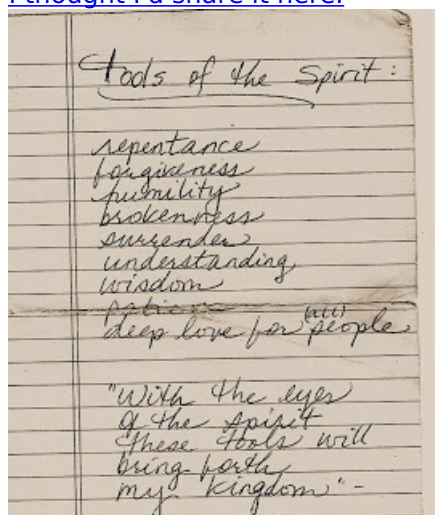 I thought I'd share it here.
Tools of the Spirit :
repentance
forgiveness
humility
brokenness
surrender
understanding
wisdom
deep love for (all) people
"With the eyes
of the spirit
these tools will
bring forth
my kingdom" -